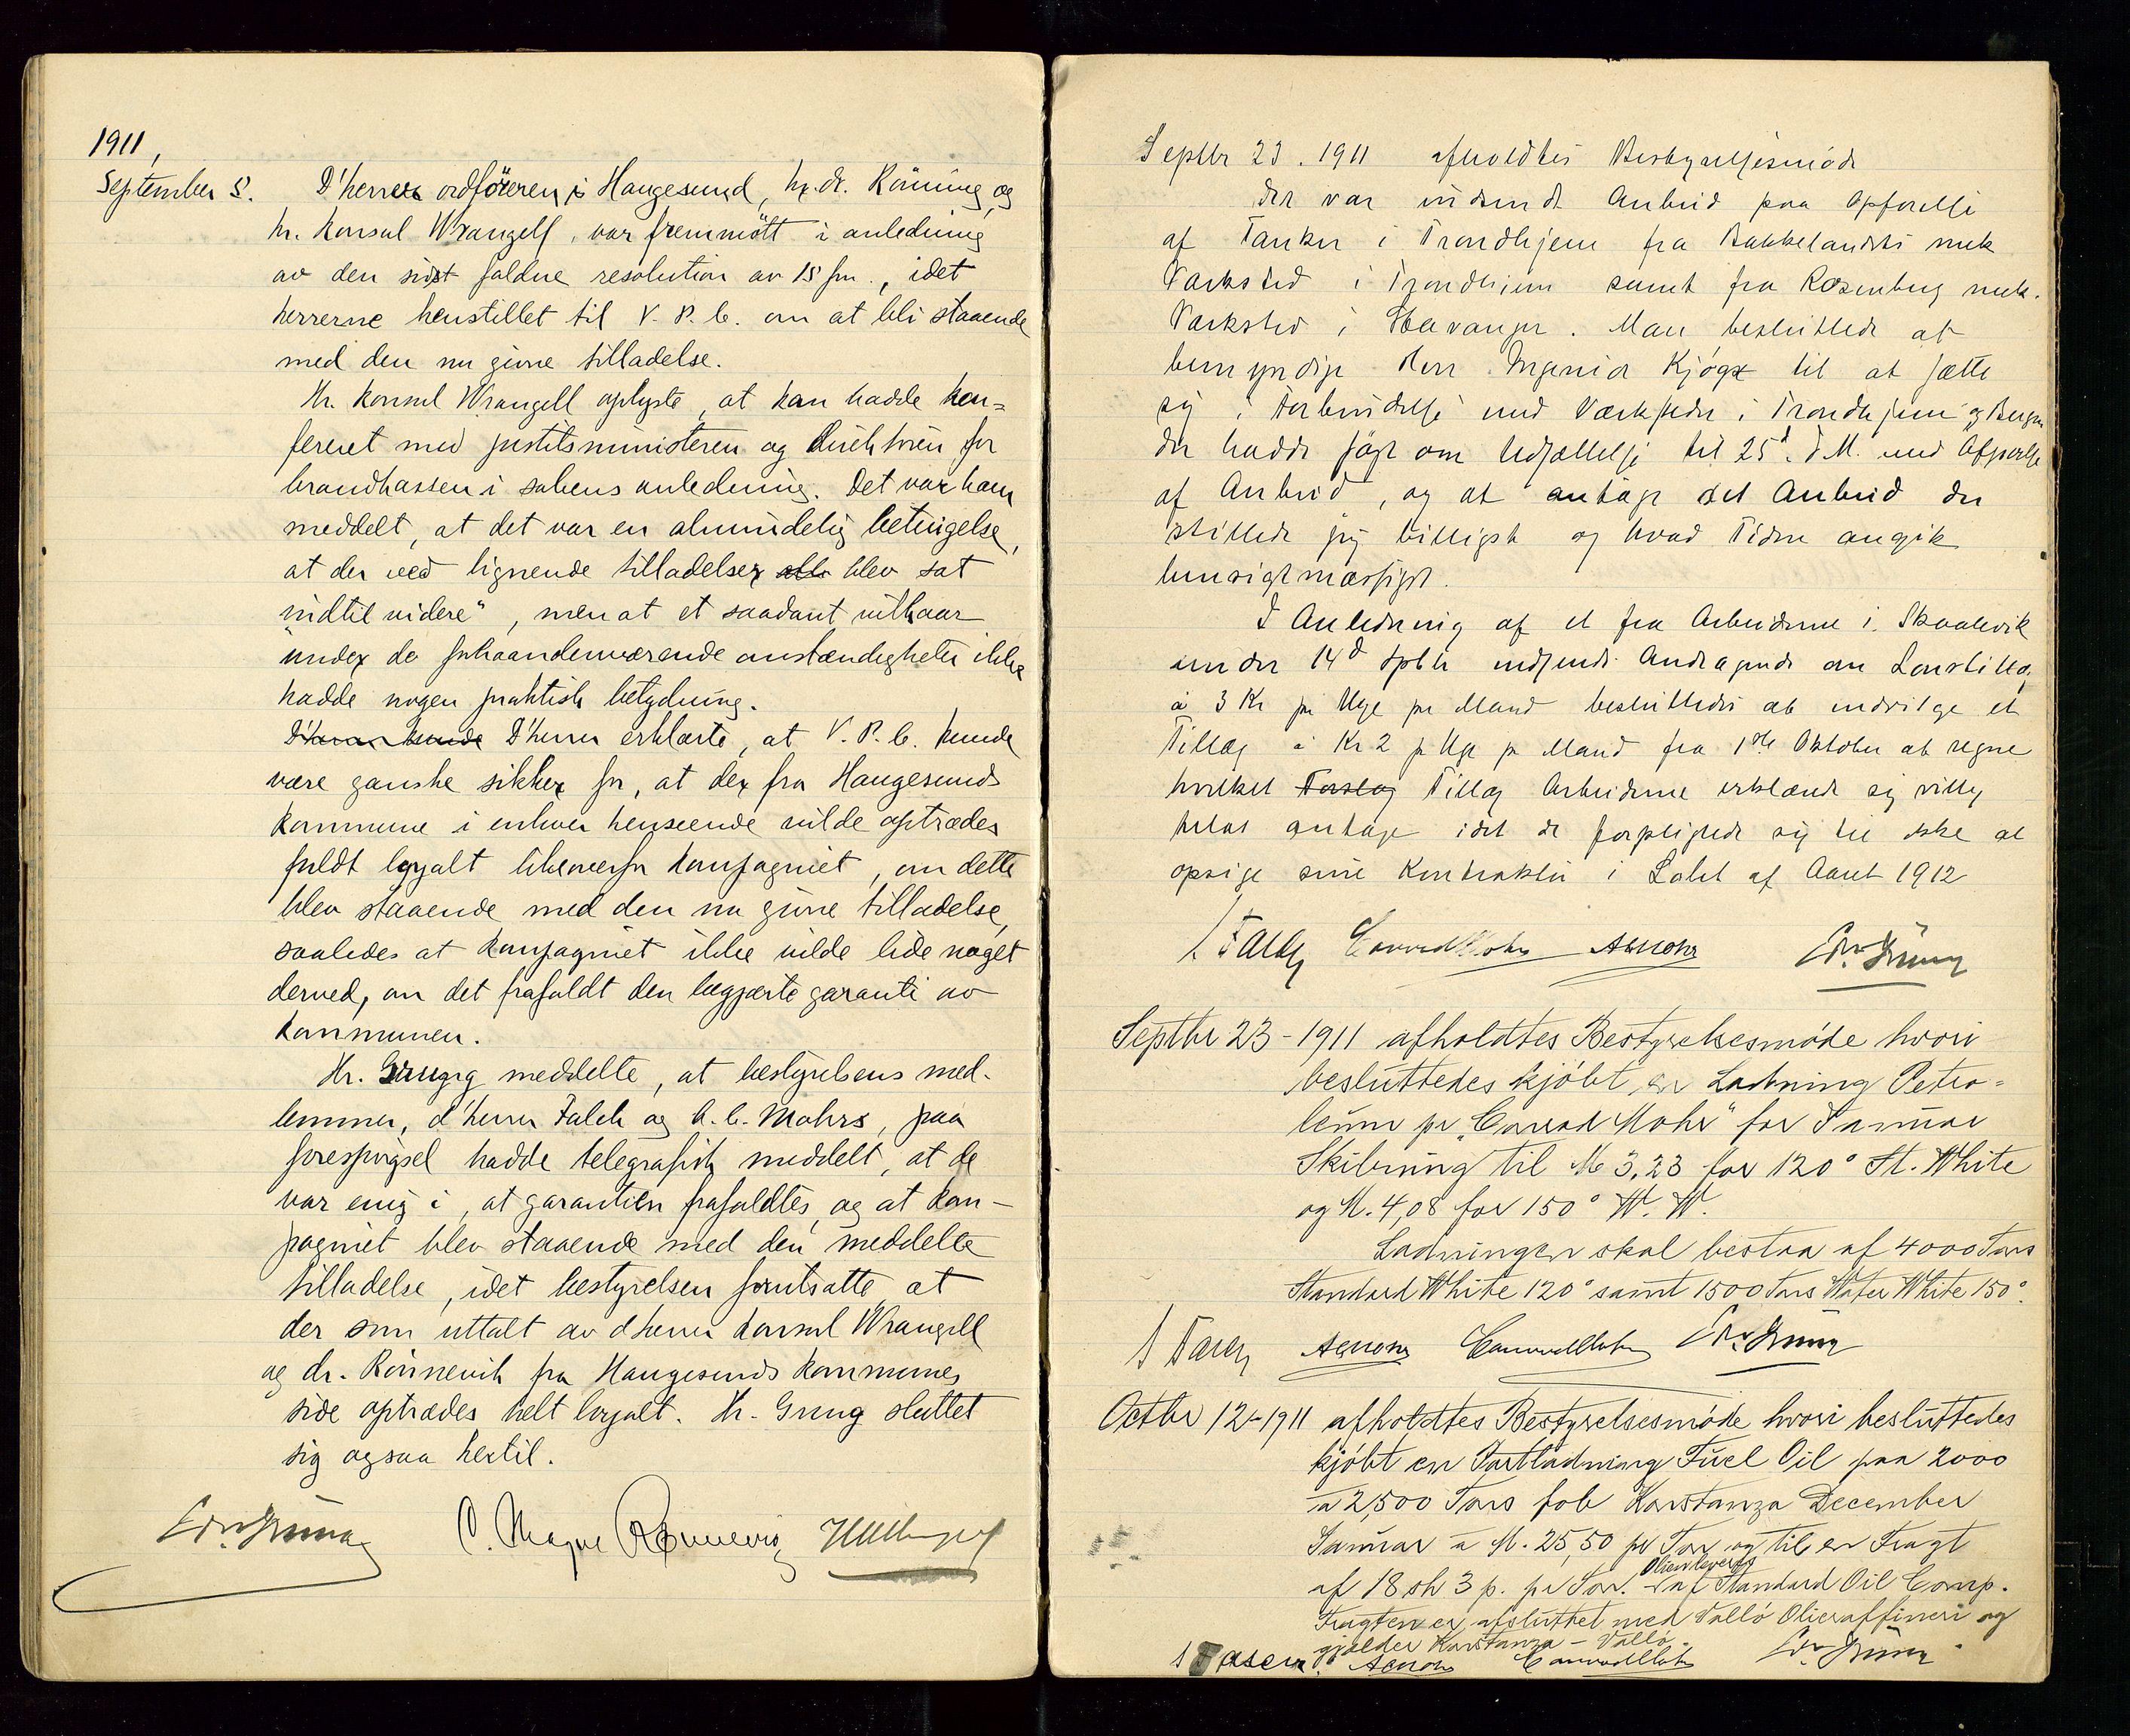 1911,
September 5. D'herrer ordføreren i Haugesund, hr. dr. Rönning, og
hr. konsul Wrangell, var fremmött i anledning
av den sidst faldne resolution av 15 , idet
herrerne henstillet til V. P. C. om at bli staaende
med den nu givne tilladelse.
Hr. konsul Wrangell oplyste, at han hadde kon=
fereret med justitsministeren og direktören for
brandkassen i sakens anledning. Det var ham
meddelt, at det var en almindelig betingelse,
at der ved lignende tilladelser blev sat
"indtil videre", men at et saadant vilkaar
under de forhaandenværende omstændigheter ikke
hadde nogen praktisk betydning.
D'herrer kunde D'herrer erklærte, at V. P. C. kunde
være ganske sikker for, at der fra Haugesunds
kommune i enhver henseende vilde optrædes
fuldt loyalt likeoverfor kompagniet, om dette
blev staaende med den nu givne tilladelse,
saaledes at kompagniet ikke vilde lide noget
derved, om det frafaldt den begjærte garanti av
kommunen.
Hr. Grung meddelte, at bestyrelsens med-
lemmer, d'herrer Falck og A. C. Mohrs, paa
forespörgsel hadde telegrafisk meddelt, at de
var enig i, at garantien frafaldtes, og at kom-
pagniet blev staaende med den meddelte
tilladelse, idet bestyrelsen forutsatte, at
der som uttalt av d'herrer konsul Wrangell
og dr. Rönnevik fra Haugesunds kommunes
side optrædes helt loyalt. Hr. Grung sluttet
sig ogsaa hertil.
Chr. Grung C. Magne Rönnevig HWrangell
Septbr 23. 1911 afholdtes Bestyrelsesmöde
Der var indsendt Anbud paa Opförelse
af Tanker i Trondhjem fra Bakkelandets mek
Værksted i Trondhjem samt fra Rosenberg mek.
Værksted i Stavanger. Man besluttede at
bemyndige Herr Ingeniør Kjøge til at sætte
sig i Forbindelse med Værksteder i Trondhjem og Bergen
der havde søgt om Udsættelse til 25d. d. M. med Afgivelse
af Anbud, og at antage det Anbud der
stillede sig billigst og hvad Tiden angik
hensigtmæssigst.
I Anledning af et fra Arbeiderne i Skaalevik
under 14d Sptbr indsendt Andragende om Lönstillæg
à 3 Kr pr Uge pr Mand besluttedes at indvilge et
Tillæg à Kr 2 pr Uge pr Mand fra 1ste Oktober at regne
hvilket Forslag Tillæg Arbeiderne erklærede sig villig
til at antage idet de forpligtede sig til ikke at
opsige sine Kontrakter i Løbet af Aaret 1912
T Falck Conrad Mohr ACMohr Chr. Grung
Septbr 23-1911 afholdtes Bestyrelsesmöde hvori
besluttedes kjöbt en Ladning Petro=
leum pr "Conrad Mohr" for Januar
Skibning til M 3,23 for 120° St. White
og M. 4,08 for 150° W. W.
Ladningen skal bestaa af 4000 Tons
Standard White 120° samt 1500 Tons Water White 150°.
T Falck ACMohr Conrad Mohr Chr. Grung
Octbr 12-1911 afholdtes Bestyrelsesmöde hvori besluttedes
kjöbt en Partladning Fuel Oil paa 2000
a 2,500 Tons fob Konstanza December
Januar a M. 25,50 pr Ton og til en Fragt
af 18 sh 3 p. pr Ton. Olien leveres af Standard Oil Comp.
Fragten er afsluttet med Vallö Olieraffineri og
gjælder Konstanza - Vallö.
T Falck ACMohr Conrad Mohr Chr. Grung